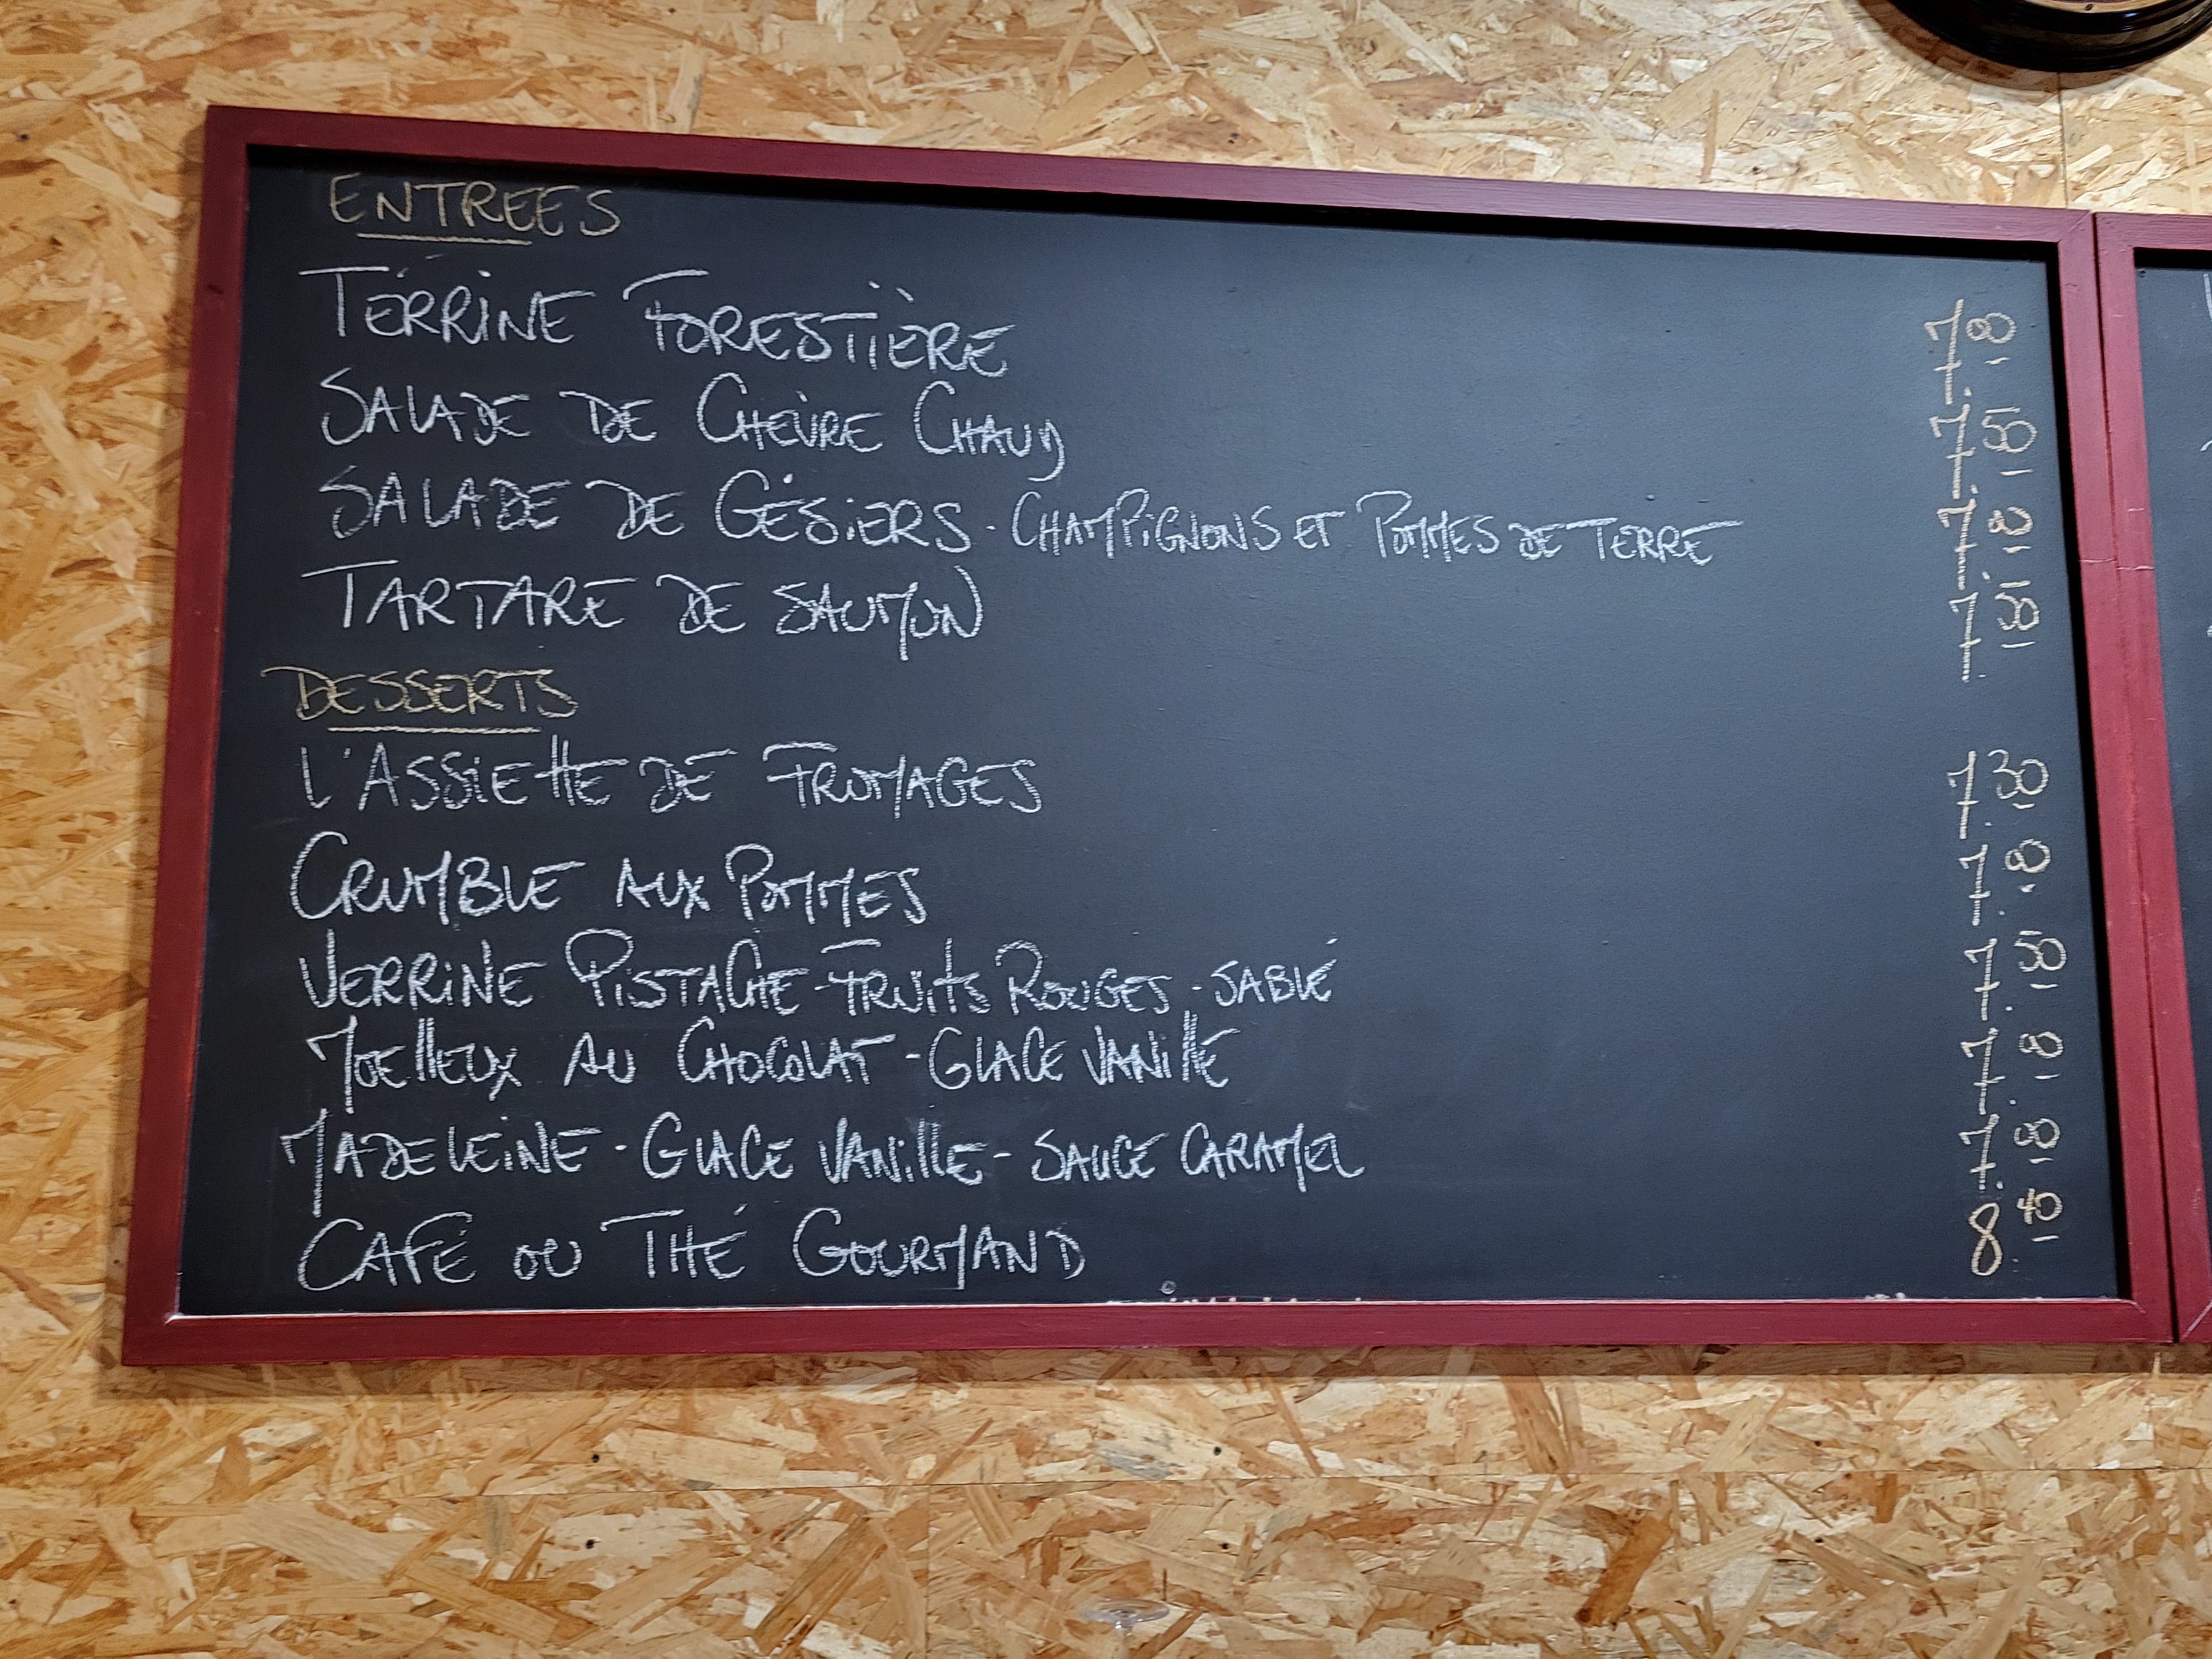 ENTREES
TERRINE FORESTIÈRE 7
SALADE DE CHÈVRE CHAUD 7
SALADE DE GÉSIERS - CHAMPIGNONS ET POMMES DE TERRE 7
TARTARE DE SAUMON 7
DESSERTS
L'ASSIETTE DE FROMAGES 7
CRUMBLE AUX POMMES 7
VERRINE PISTACHE - FRUITS ROUGES - SABLÉ 7
MOELLEUX AU CHOCOLAT - GLACE VANILLE 7
MADELEINE - GLACE VANILLE - SAUCE CARAMEL 7
CAFÉ OU THÉ GOURMAND 8